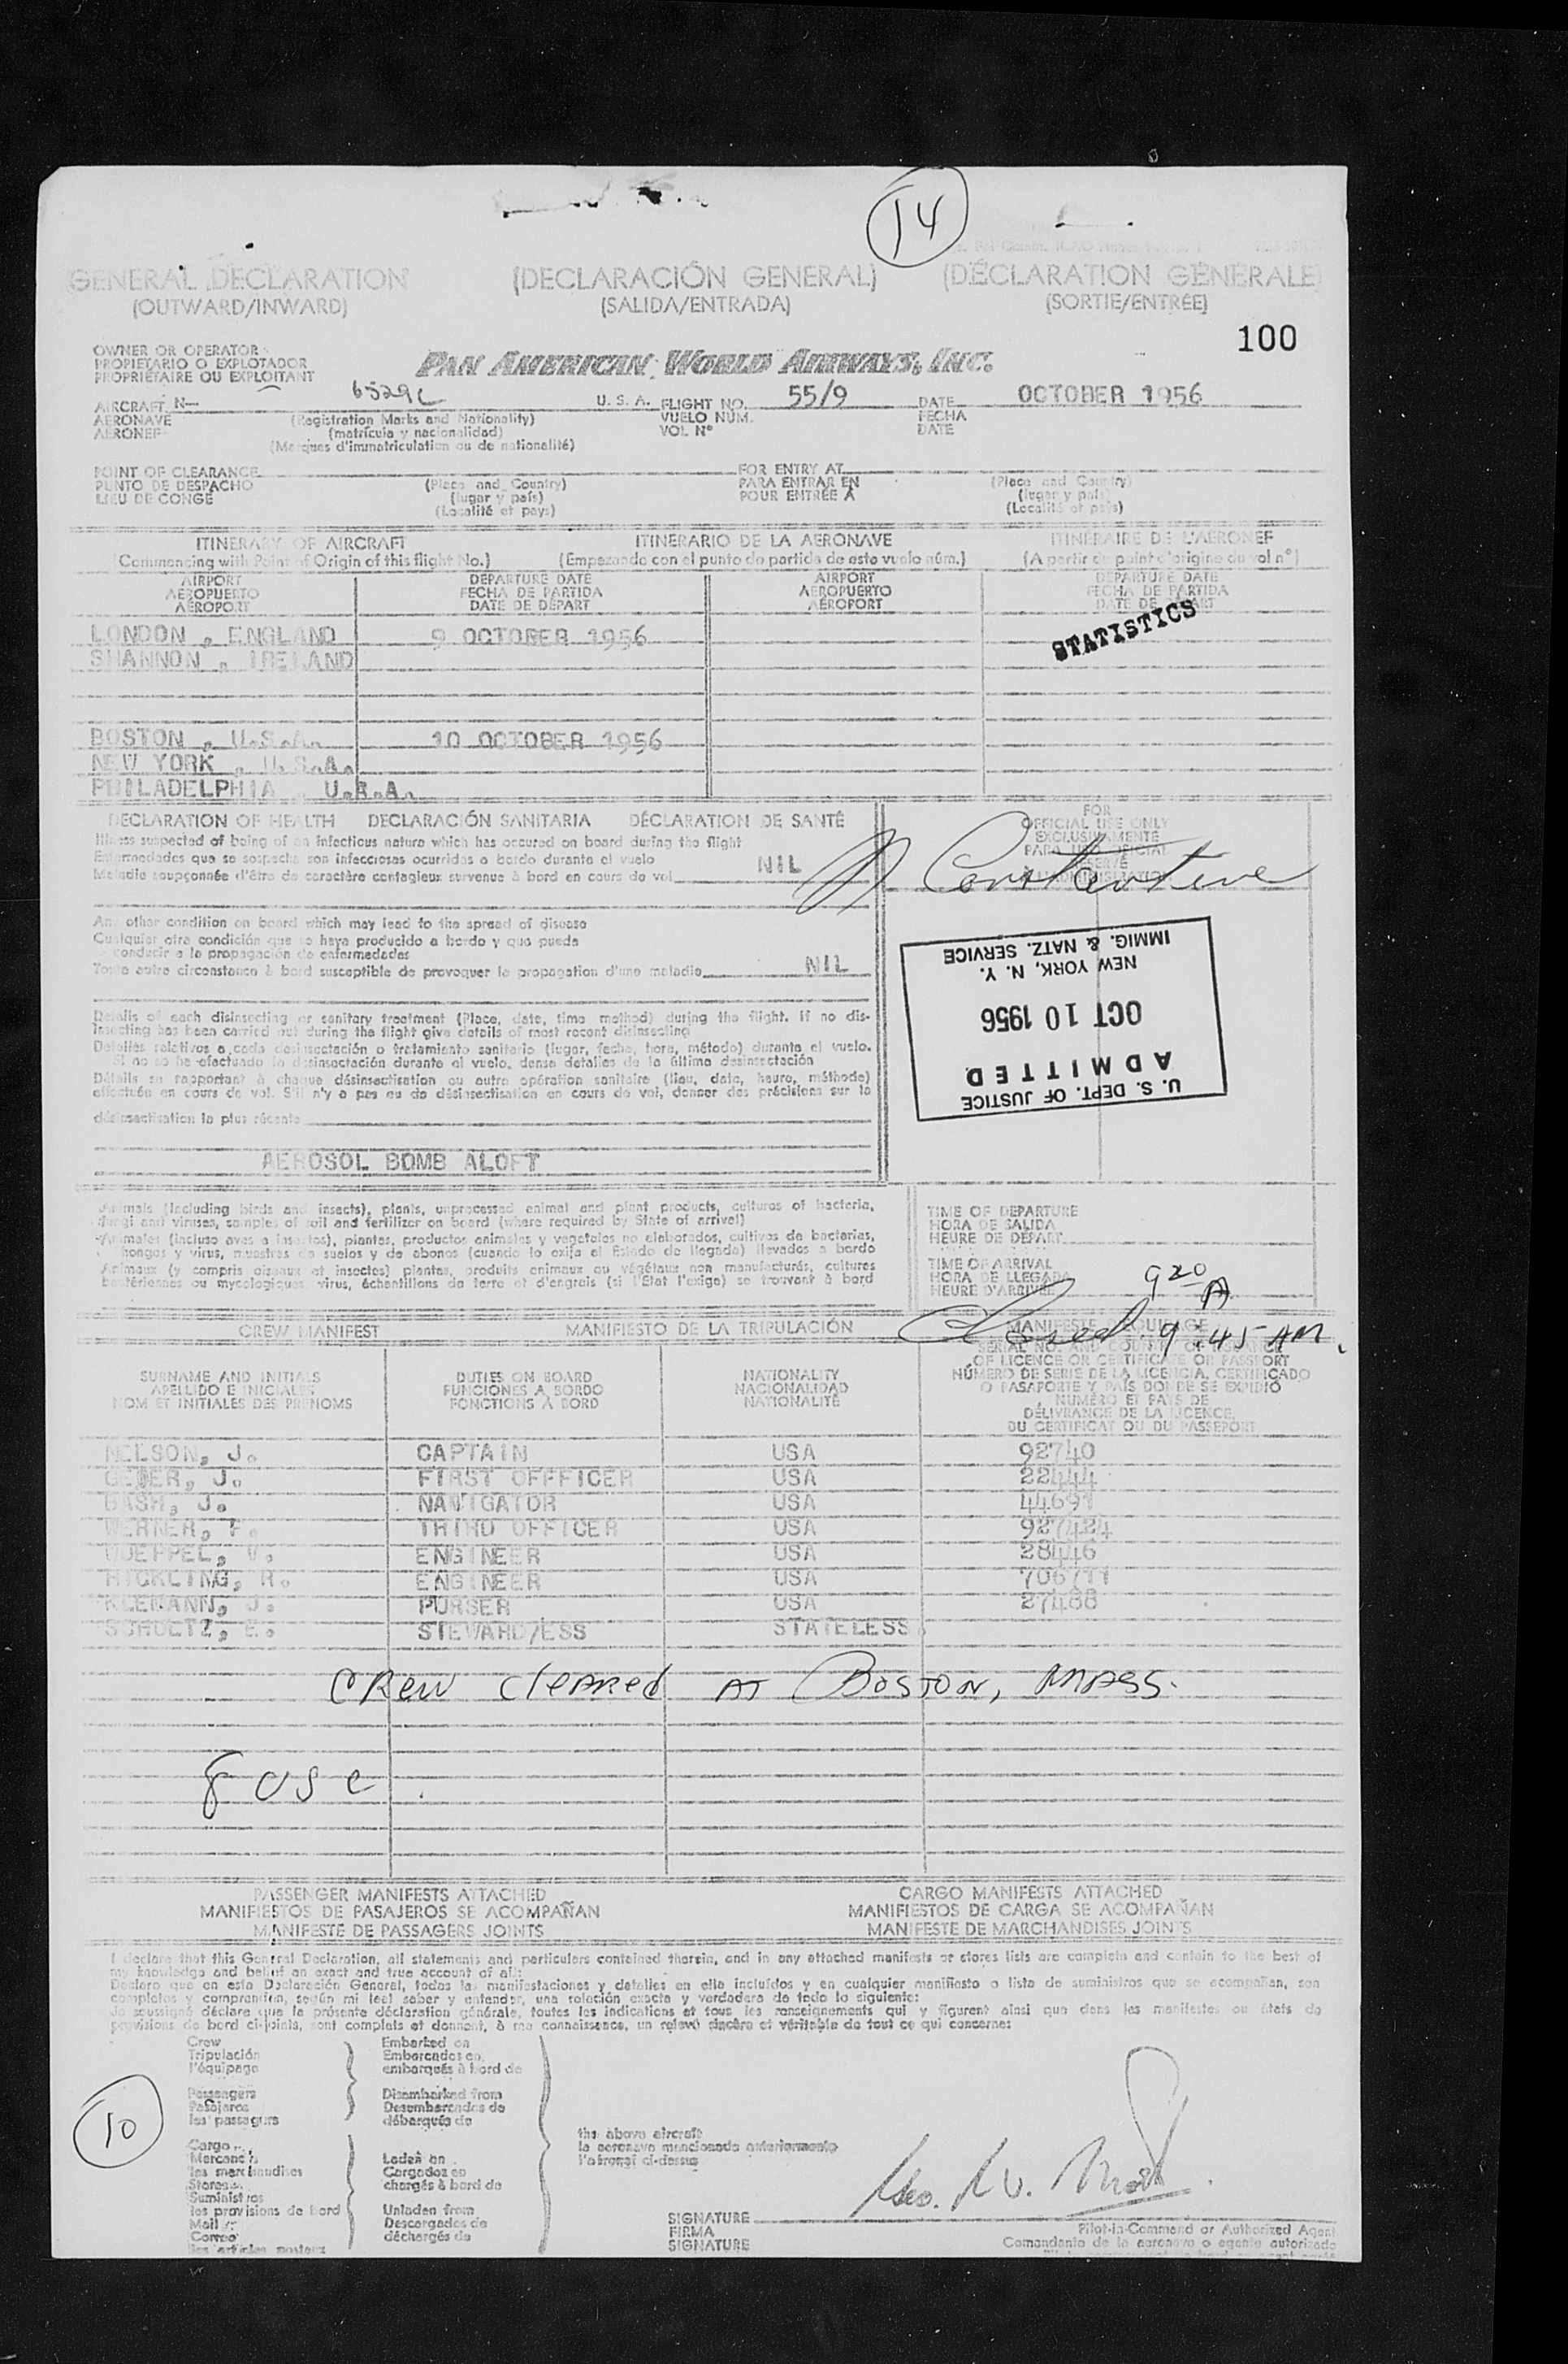 14
GENERAL DECLARATION (DECLARACIÓN GENERAL) (DÉCLARATION GÉNÉRALE)
(OUTWARD/INWARD) (SALIDA/ENTRADA) (SORTIE/ENTRÉE)
100
OWNER OR OPERATOR
PROPIETARIO O EXPLOTADOR
PROPRIÉTAIRE OU EXPLOITANT
PAN AMERICAN WORLD AIRWAYS, INC.
AIRCRAFT N— 6529C U. S. A. FLIGHT NO. 55/9 DATE OCTOBER 1956
AERONAVE (Registration Marks and Nationality) VUELO NÚM. FECHA
AÉRONEF (matrícula y nacionalidad) VOL N° DATE
(Marques d'immatriculation ou de nationalité)
POINT OF CLEARANCE FOR ENTRY AT
PUNTO DE DESPACHO (Place and Country) PARA ENTRAR EN (Place and Country)
LIEU DE CONGÉ (lugar y país) POUR ENTRÉE À (lugar y país)
(Localité et pays) (Localité et pays)
ITINERARY OF AIRCRAFT ITINERARIO DE LA AERONAVE ITINÉRAIRE DE L'AÉRONEF
(Commencing with Point of Origin of this flight No.) (Empezando con el punto de partida de este vuelo núm.) (A partir du point d'origine du vol n°)
AIRPORT DEPARTURE DATE AIRPORT DEPARTURE DATE
AEROPUERTO FECHA DE PARTIDA AEROPUERTO FECHA DE PARTIDA
AÉROPORT DATE DE DÉPART AÉROPORT DATE DE DÉPART
STATISTICS
LONDON , ENGLAND 9 OCTOBER 1956
SHANNON , IRELAND
BOSTON , U.S.A. 10 OCTOBER 1956
NEW YORK , U.S.A.
PHILADELPHIA U.S.A.
DECLARATION OF HEALTH DECLARACIÓN SANITARIA DÉCLARATION DE SANTÉ
Illness suspected of being of an infectious nature which has occured on board during the flight
Enfermedades que se sospecha son infecciosas ocurridas a bordo durante el vuelo
Maladie soupçonnée d'être de caractère contagieux survenue à bord en cours de vol NIL
FOR
OFFICIAL USE ONLY
EXCLUSIVAMENTE
PARA USO OFICIAL
RÉSERVÉ
À L'ADMINISTRATION
Constantine
Any other condition on board which may lead to the spread of disease
Cualquier otra condición que se haya producido a bordo y que pueda
conducir a la propagación de enfermedades
Toute autre circonstance à bord susceptible de provoquer la propagation d'une maladie NIL
U. S. DEPT. OF JUSTICE
ADMITTED
OCT 10 1956
NEW YORK, N. Y.
IMMIG. & NATZ. SERVICE
Details of each disinsecting or sanitary treatment (Place, date, time method) during the flight. If no dis-
insecting has been carried out during the flight give details of most recent disinsecting
Detalles relativos a cada desinsectación o tratamiento sanitario (lugar, fecha, hora, método) durante el vuelo.
Si no se ha efectuado la desinsectación durante el vuelo, dense detalles de la última desinsectación
Détails se rapportant à chaque désinsectisation ou autre opération sanitaire (lieu, date, heure, méthode)
effectuée en cours de vol. S'il n'y a pas eu de désinsectisation en cours de vol, donner des précisions sur la
désinsectisation la plus récente
AEROSOL BOMB ALOFT
Animals (including birds and insects), plants, unprocessed animal and plant products, cultures of bacteria,
fungi and viruses, samples of soil and fertilizer on board (where required by State of arrival)
Animales (incluso aves e insectos), plantas, productos animales y vegetales no elaborados, cultivos de bacterias,
hongos y virus, muestras de suelos y de abonos (cuando lo exija el Estado de llegada) llevados a bordo
Animaux (y compris oiseaux et insectes) plantes, produits animaux ou végétaux non manufacturés, cultures
bactériennes ou mycologiques virus, échantillons de terre et d'engrais (si l'État l'exige) se trouvant à bord
TIME OF DEPARTURE
HORA DE SALIDA
HEURE DE DÉPART
TIME OF ARRIVAL
HORA DE LLEGADA
HEURE D'ARRIVÉE 9 20 A
CREW MANIFEST MANIFIESTO DE LA TRIPULACIÓN MANIFESTE D'ÉQUIPAGE
9:45 AM.
SURNAME AND INITIALS DUTIES ON BOARD NATIONALITY SERIAL NO. AND COUNTRY OF ISSUANCE
APELLIDO E INICIALES FUNCIONES A BORDO NACIONALIDAD OF LICENCE OR CERTIFICATE OR PASSPORT
NOM ET INITIALES DES PRÉNOMS FONCTIONS À BORD NATIONALITÉ NÚMERO DE SERIE DE LA LICENCIA, CERTIFICADO
O PASAPORTE Y PAÍS DONDE SE EXPIDIÓ
NUMÉRO ET PAYS DE
DÉLIVRANCE DE LA LICENCE,
DU CERTIFICAT OU DU PASSEPORT
NELSON, J. CAPTAIN USA 92740
J. FIRST OFFFICER USA 22444
BASH, J. NAVIGATOR USA 44691
WERNER, F. THIRD OFFICER USA 927424
WUEPPEL, W. ENGINEER USA 28446
HICKLING, R. ENGINEER USA 706711
KLEMANN, J. PURSER USA 27488
SCHULTZ, E. STEWARD/ESS STATELESS
CREW CLEARED AT BOSTON, MASS.
8 USC
PASSENGER MANIFESTS ATTACHED CARGO MANIFESTS ATTACHED
MANIFIESTOS DE PASAJEROS SE ACOMPAÑAN MANIFIESTOS DE CARGA SE ACOMPAÑAN
MANIFESTE DE PASSAGERS JOINTS MANIFESTE DE MARCHANDISES JOINTS
I declare that this General Declaration, all statements and particulars contained therein, and in any attached manifests or stores lists are complete and contain to the best of
my knowledge and belief an exact and true account of all:
Declaro que en esta Declaración General, todas las manifestaciones y detalles en ella incluídos y en cualquier manifiesto o lista de suministros que se acompañan, son
completos y comprenden, según mi leal saber y entender, una relación exacta y verdadera de todo lo siguiente:
Je soussigné déclare que la présente déclaration générale, toutes les indications et tous les renseignements qui y figurent ainsi que dans les manifestes ou états de
provisions de bord ci-joints, sont complets et donnent, à ma connaissance, un relevé sincère et véritable de tout ce qui concerne:
Crew Embarked on
Tripulación Embarcados en
l'équipage embarqués à bord de
Passengers Disembarked from
Pasajeros Desembarcados de
les passagers débarqués de
10
the above aircraft
la aeronave mencionada anteriormente
l'aéronef ci-dessus
Cargo
Mercancía Laden on
les marchandises Cargados en
Stores chargés à bord de
Suministros
les provisions de bord Unladen from
Mail Descargados de
Correo déchargés de
les articles postaux
SIGNATURE
FIRMA Pilot-in-Command or Authorized Agent
SIGNATURE Comandante de la aeronave o agente autorizado